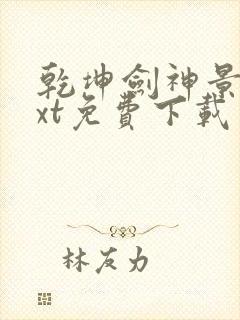 乾坤劍神景
xt免費下載
林友力